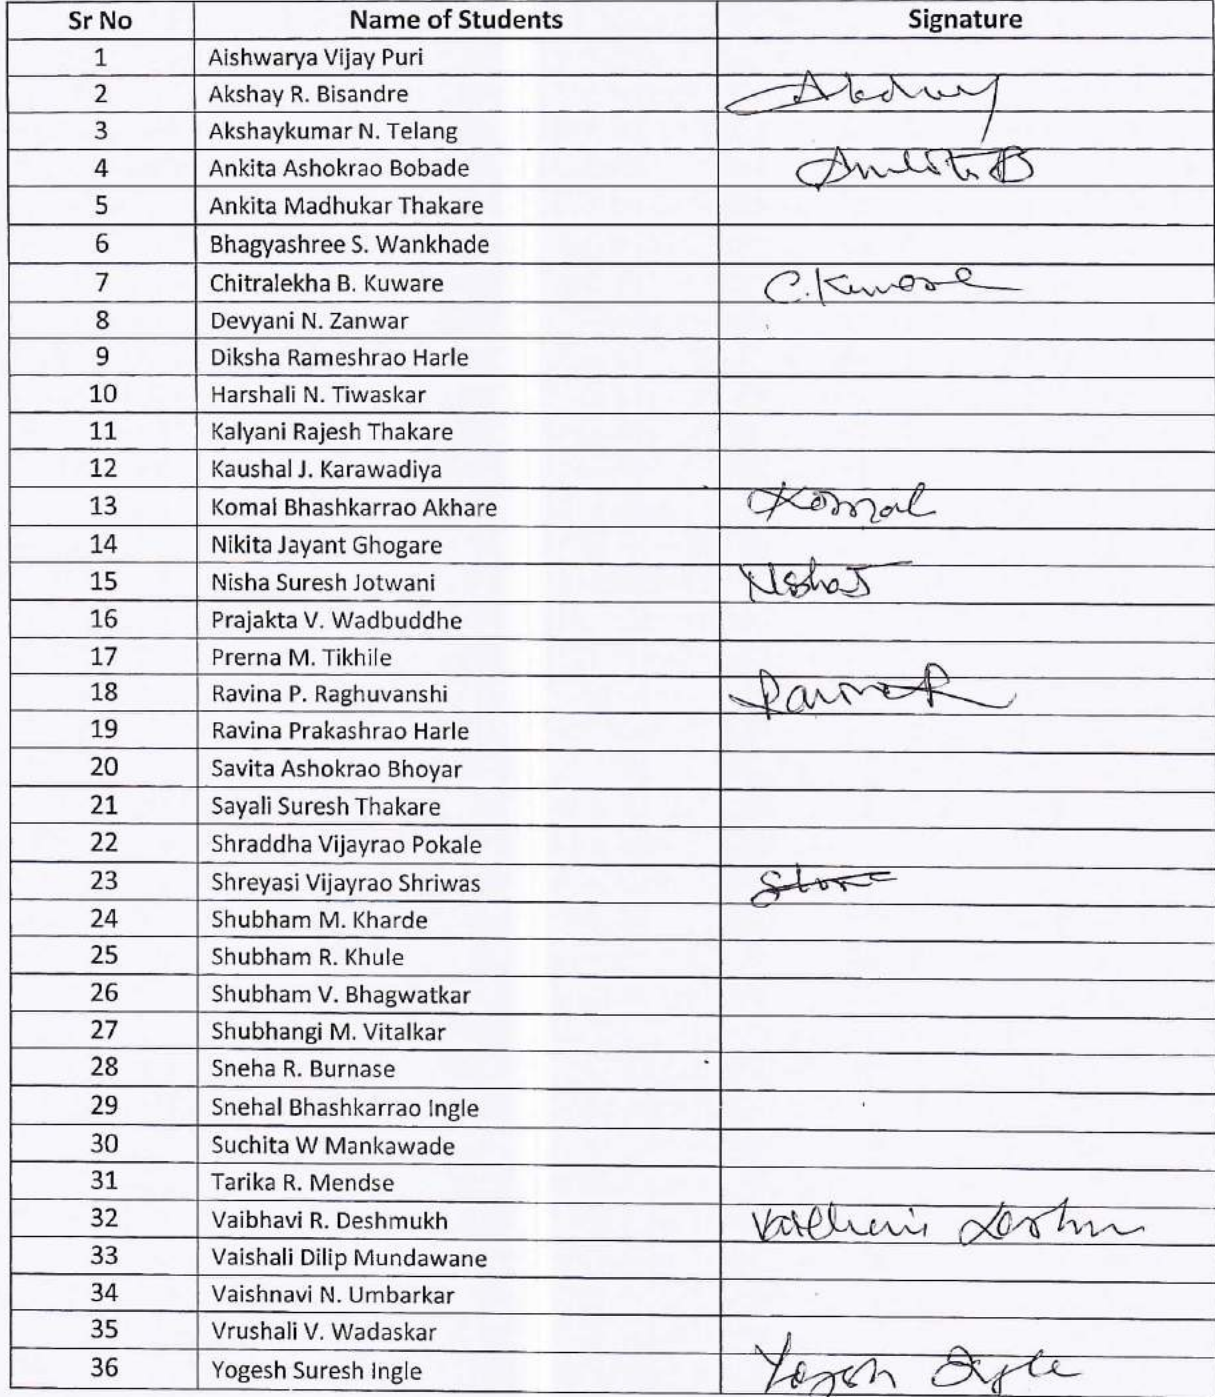 Sr No Name of Students Signature
1 Aishwarya Vijay Puri
2 Akshay R. Bisandre
3 Akshaykumar N. Telang
4 Ankita Ashokrao Bobade
5 Ankita Madhukar Thakare
6 Bhagyashree S. Wankhade
7 Chitralekha B. Kuware C. Kuware
8 Devyani N. Zanwar
9 Diksha Rameshrao Harle
10 Harshali N. Tiwaskar
11 Kalyani Rajesh Thakare
12 Kaushal J. Karawadiya
13 Komal Bhashkarrao Akhare Komal
14 Nikita Jayant Ghogare
15 Nisha Suresh Jotwani Nisha J
16 Prajakta V. Wadbuddhe
17 Prerna M. Tikhile
18 Ravina P. Raghuvanshi
19 Ravina Prakashrao Harle
20 Savita Ashokrao Bhoyar
21 Sayali Suresh Thakare
22 Shraddha Vijayrao Pokale
23 Shreyasi Vijayrao Shriwas
24 Shubham M. Kharde
25 Shubham R. Khule
26 Shubham V. Bhagwatkar
27 Shubhangi M. Vitalkar
28 Sneha R. Burnase
29 Snehal Bhashkarrao Ingle
30 Suchita W Mankawade
31 Tarika R. Mendse
32 Vaibhavi R. Deshmukh
33 Vaishali Dilip Mundawane
34 Vaishnavi N. Umbarkar
35 Vrushali V. Wadaskar
36 Yogesh Suresh Ingle Yogesh Ingle